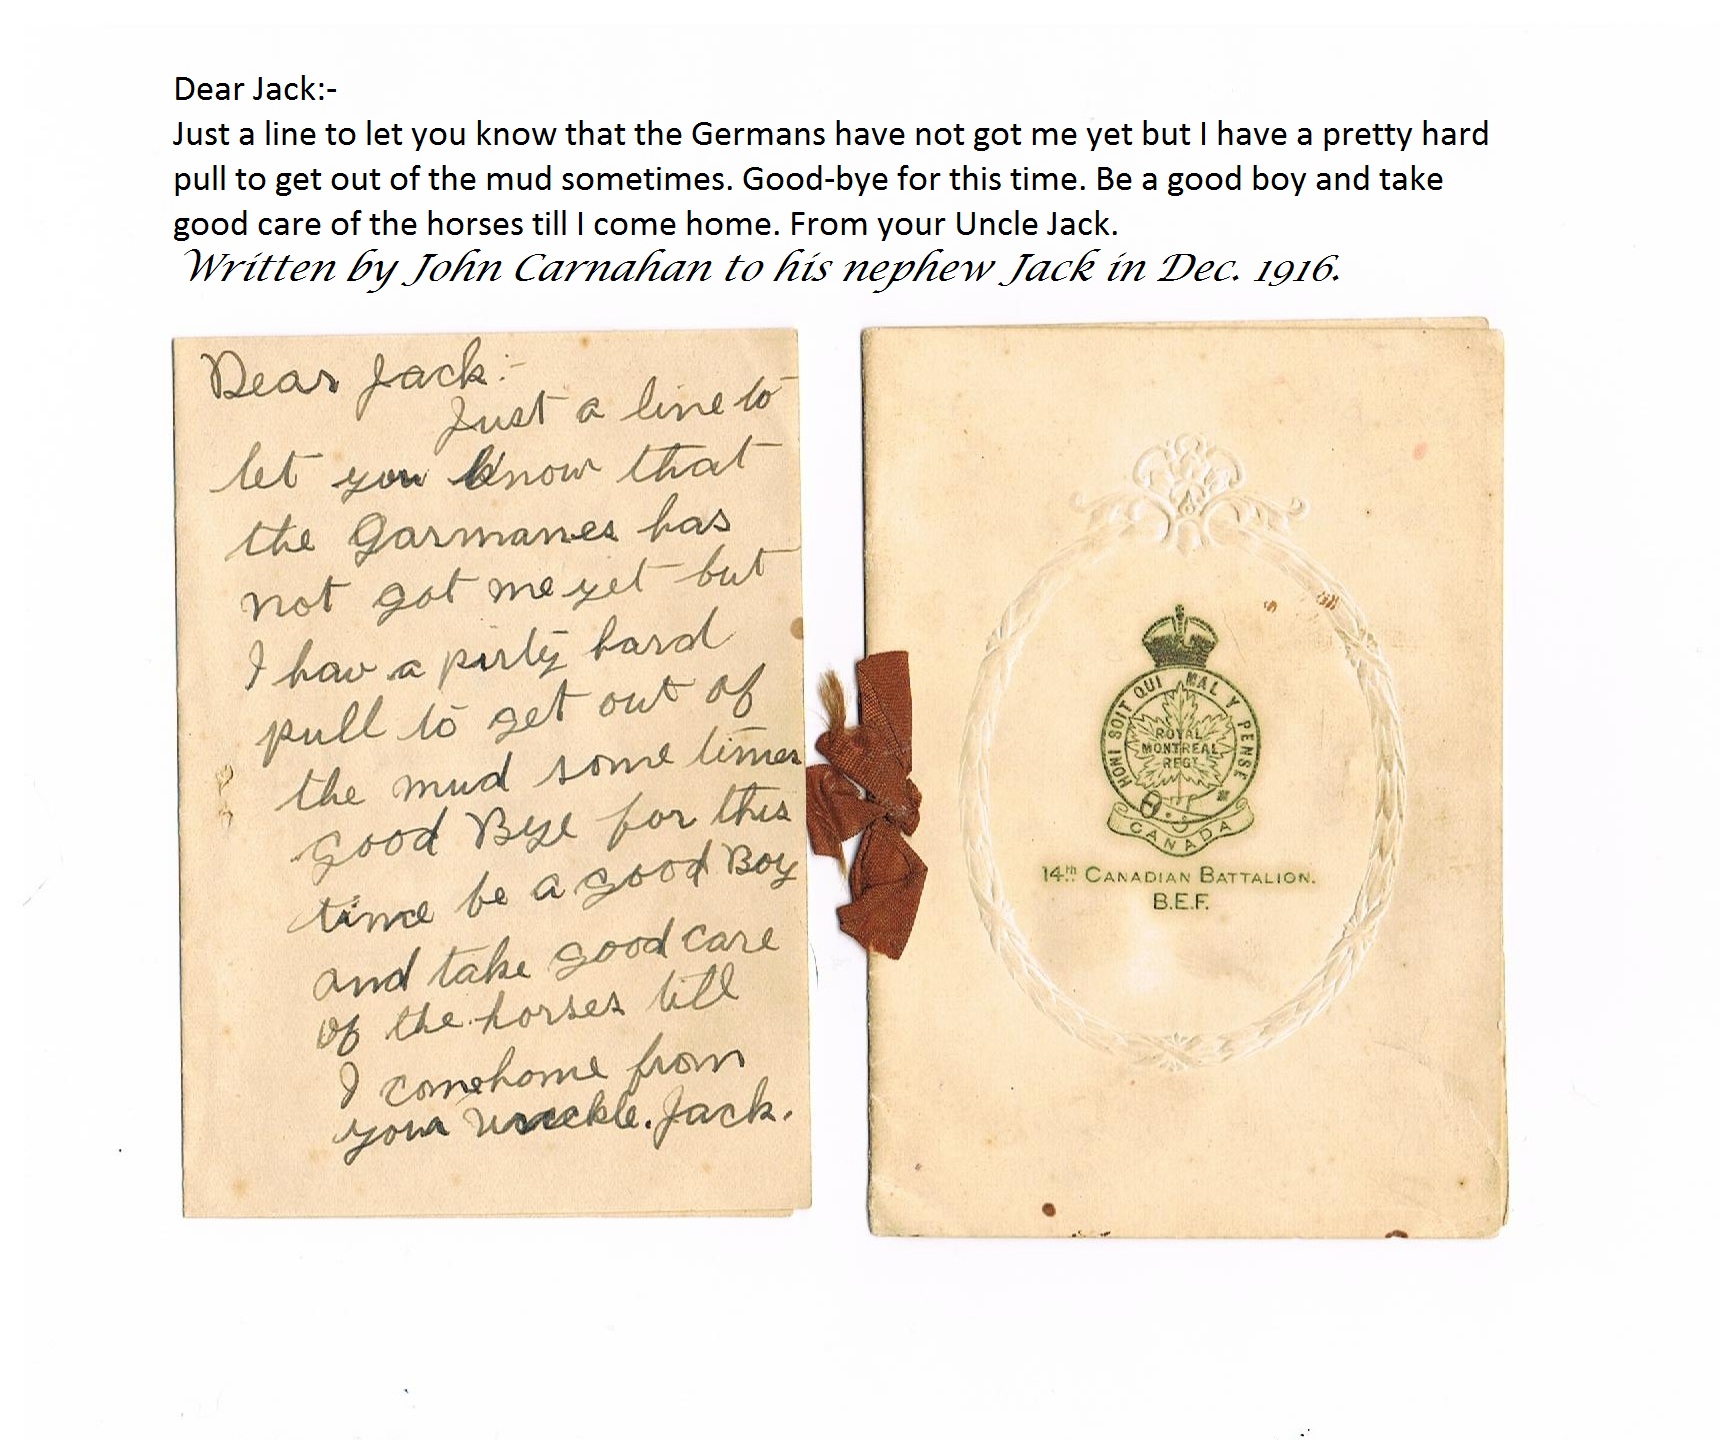 Dear Jack:-
Just a line to let you know that the Germans have not got me yet but I have a pretty hard
pull to get out of the mud sometimes. Good-bye for this time. Be a good boy and take
good care of the horses till I come home. From your Uncle Jack.
Written by John Carnahan to his nephew Jack in Dec. 1916.
Dear Jack:-
Just a line to
let you know that
the Garmanes has
not got me yet but
I hav a pirty hard
pull to get out of
the mud some times
good Bye for this
time be a good Boy
and take good care
of the horses till
I come home from
your Unckle. Jack.
HONI SOIT QUI MAL Y PENSE
ROYAL
MONTREAL
REGT
CANADA
14th CANADIAN BATTALION.
B.E.F.